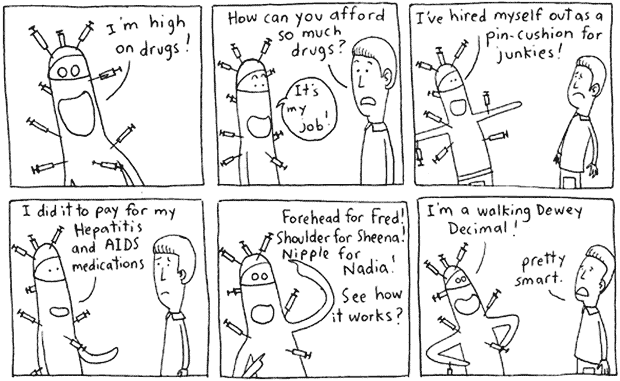 I'm high
on drugs!
How can you afford
so much
drugs?
It's
my
job!
I've hired myself out as a
pin-cushion for
junkies!
I did it to pay for my
Hepatitis
and AIDS
medications
Forehead for Fred!
Shoulder for Sheena!
Nipple for
Nadia!
See how
it works?
I'm a walking Dewey
Decimal!
pretty
smart.